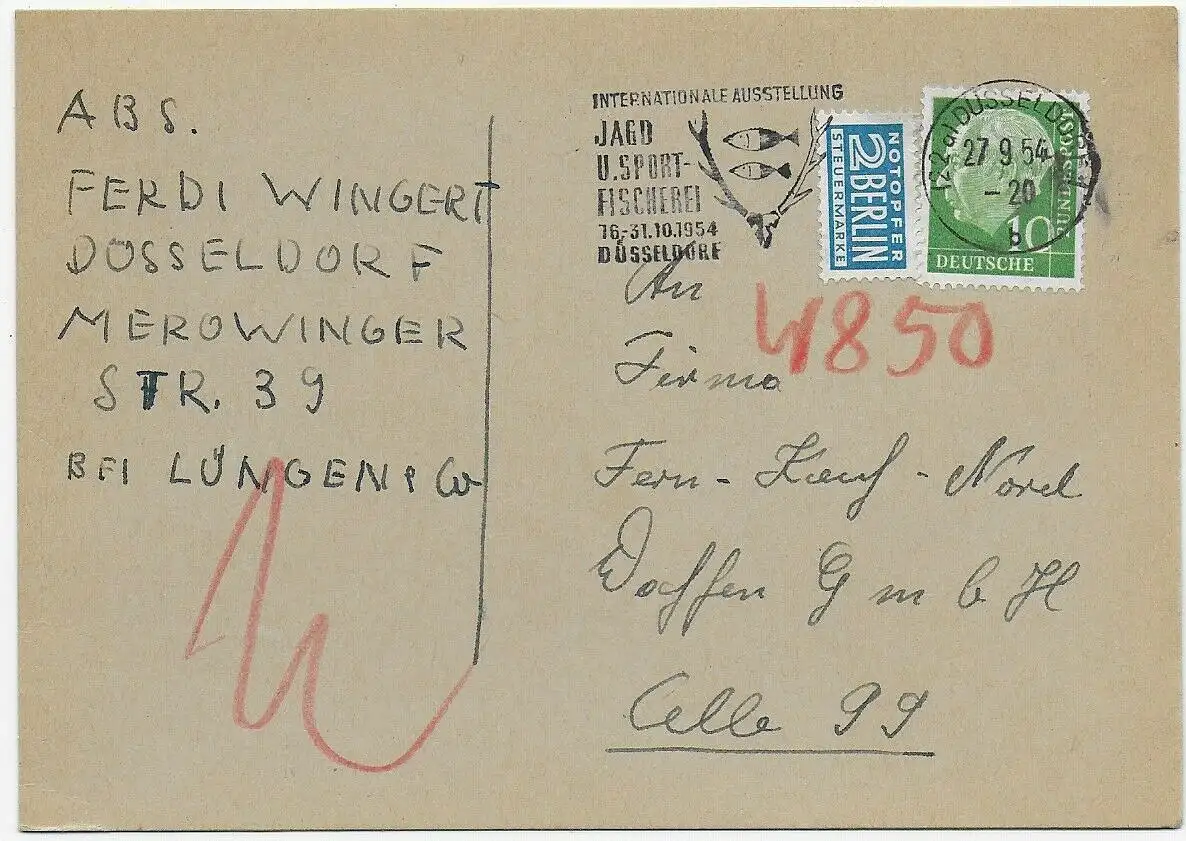 ABS.
FERDI WINGERT
DÜSSELDORF
MEROWINGER
STR. 39
BEI LÜNGEN & Co
INTERNATIONALE AUSSTELLUNG
JAGD
U. SPORT-
FISCHEREI
16.-31.10.1954
DÜSSELDORF
NOTOPFER
2 BERLIN
STEUERMARKE
DÜSSELDORF
27.9.54
-20
b
10
DEUTSCHE
BUNDESPOST
An
W850
Firma
Fern-Kauf-Nord
GmbH
Celle 99